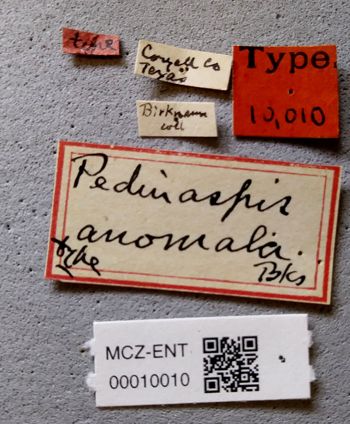 type
Coryell Co
Texas
Birkmann
coll
Type
10,010
Pedinaspis
anomala.
type
Bks
MCZ-ENT
00010010